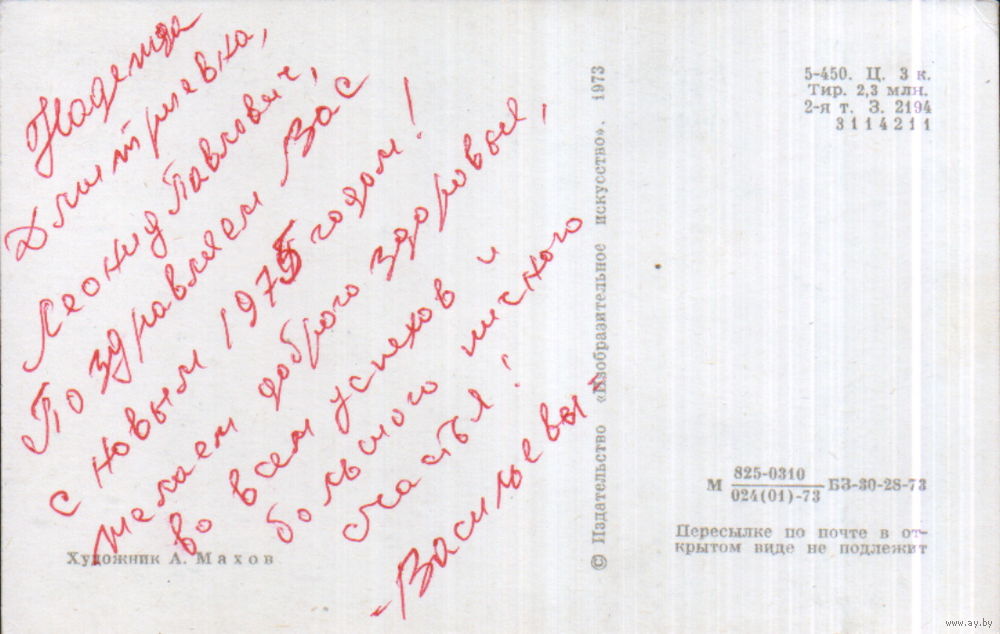 Надежда
Дмитриевна,
Леонид Павлович,
Поздравляем Вас
с новым 1975 годом!
желаем доброго здоровья,
во всем успехов и
большого личного
счастья!
-Васильевы
Художник А. Махов
© Издательство «Изобразительное искусство». 1973
5-450. Ц. 3 к.
Тир. 2,3 млн.
2-я т. З. 2194
3114211
М 825-0310
024(01)-73 БЗ-30-28-73
Пересылке по почте в от-
крытом виде не подлежит
www.ay.by